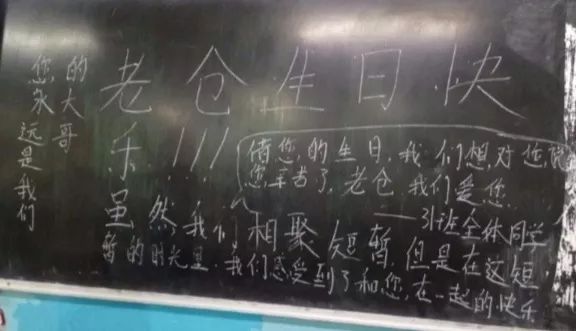 老仓生日快
乐!!!
您永远是我们
的大哥
借您的生日,我们想对您说
您辛苦了,老仓,我们爱您.
——31班全体同学
虽然我们相聚短暂,但是在这短
暂的时光里,我们感受到了和您在一起的快乐